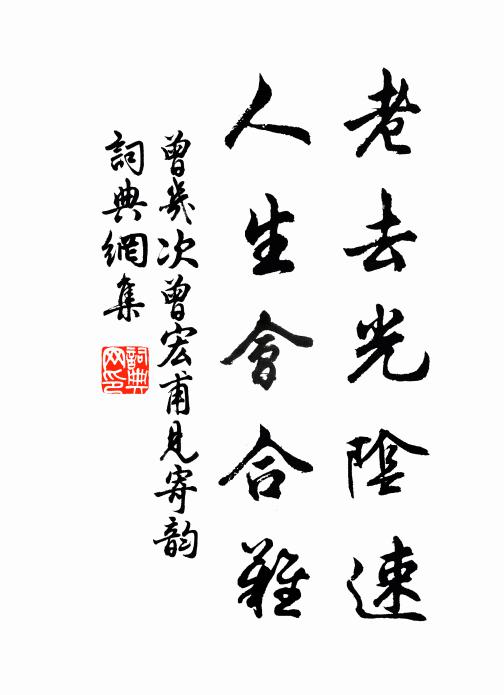 老去光陰速
人生會合難
曾幾次曾宏甫見寄韵
詞典網集
詞典
网印